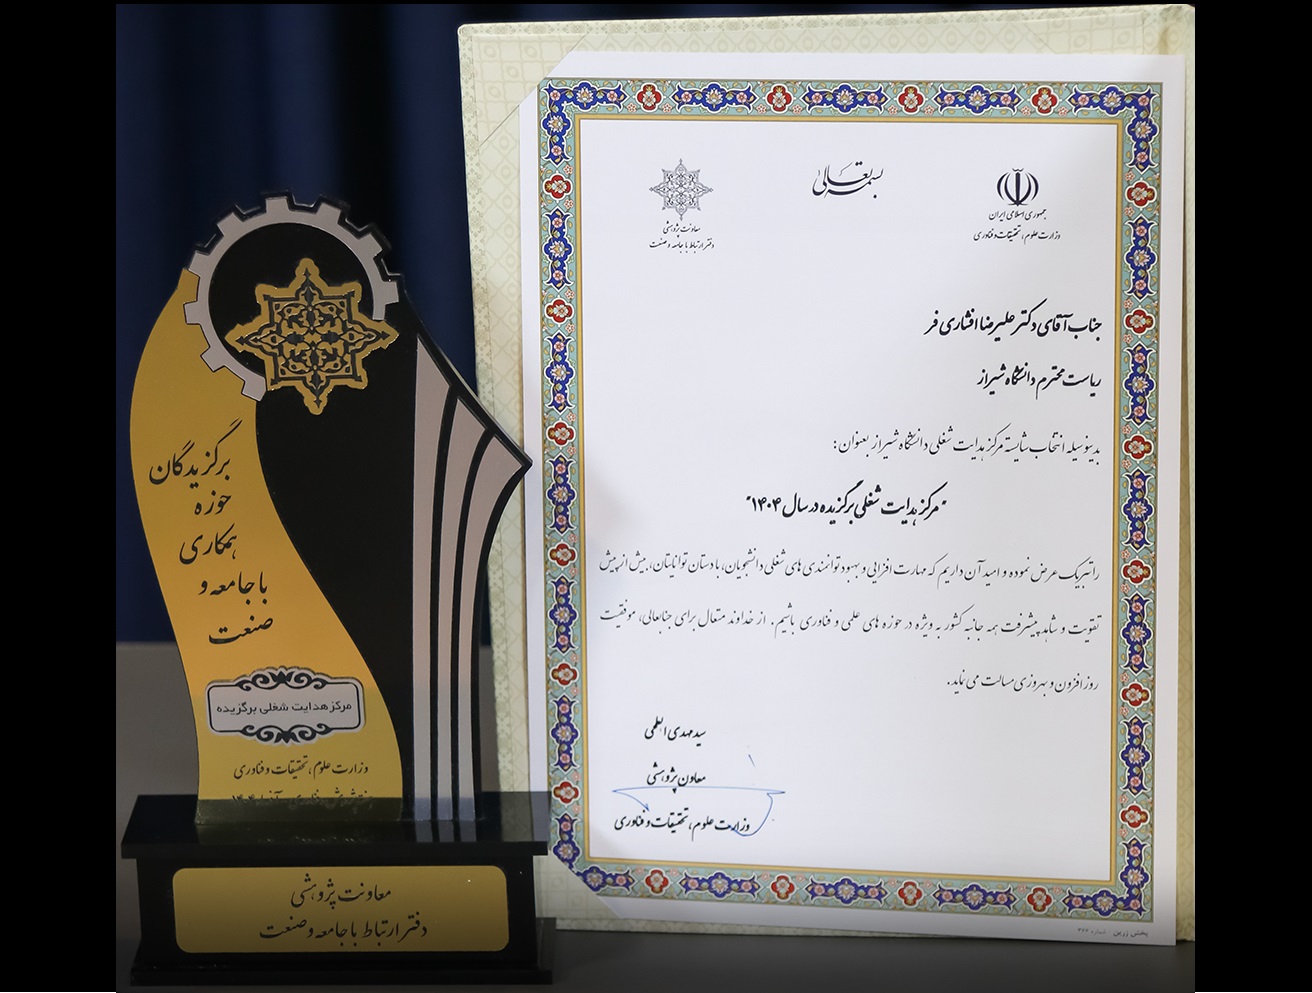 برگزیدگان
حوزه
همکاری
با جامعه و
صنعت
مرکز هدایت شغلی برگزیده
وزارت علوم، تحقیقات و فناوری
معاونت پژوهشی
دفتر ارتباط با جامعه و صنعت
بسمه تعالی
جمهوری اسلامی ایران
وزارت علوم، تحقیقات و فناوری
معاونت پژوهشی
دفتر ارتباط با جامعه و صنعت
جناب آقای دکتر علیرضا افشاری فر
ریاست محترم دانشگاه شیراز
بدینوسیله انتخاب شایسته مرکز هدایت شغلی دانشگاه شیراز بعنوان:
"مرکز هدایت شغلی برگزیده در سال ۱۴۰۴"
را تبریک عرض نموده و امید آن داریم که مهارت افزایی و بهبود توانمندی های شغلی دانشجویان، با دستان توانایتان، بیش از پیش
تقویت و شاهد پیشرفت همه جانبه کشور به ویژه در حوزه های علمی و فناوری باشیم. از خداوند متعال برای جنابعالی، موفقیت
روز افزون و بهروزی مسالت می نماید.
سید مهدی ابطحی
معاون پژوهشی
وزارت علوم، تحقیقات و فناوری
پخش زرین - شماره